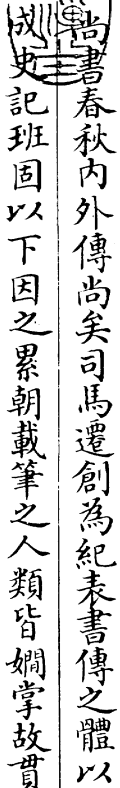 尚書春秋内外傳尚矣司馬遷創為紀表書傳之體以
成史記班固以下因之累朝載筆之人類皆嫺掌故貫